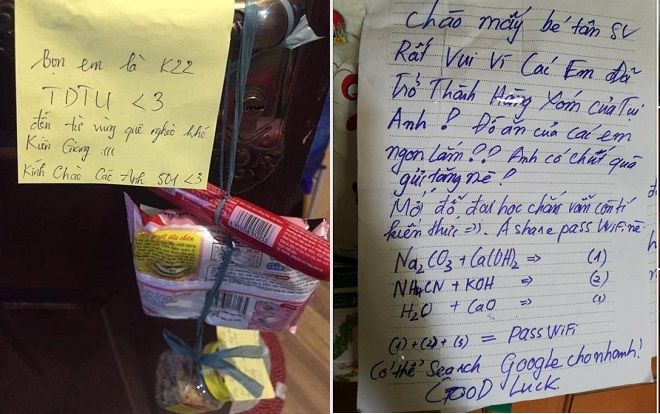 Bọn em là K22
TDTU <3
đến từ vùng quê nghèo khó
Kiên Giang :(((
Kính Chào Các Anh SGU <3
Chào mấy bé tân SV
Rất Vui Vì Các Em đã
Trở Thành Hàng Xóm của Tụi
Anh! Đồ ăn của các em
ngon lắm?? Anh có chút quà
gửi tặng nè!
Mới đỗ đại học chắc vẫn còn tí
kiến thức =)). A share pass Wifi nè
Na2CO3 + Ca(OH)2 => (1)
NH4CN + KOH => (2)
H2O + CaO => (3)
(1) + (2) + (3) = Pass Wifi
Có thể Search Google cho nhanh!
GOOD LUCK